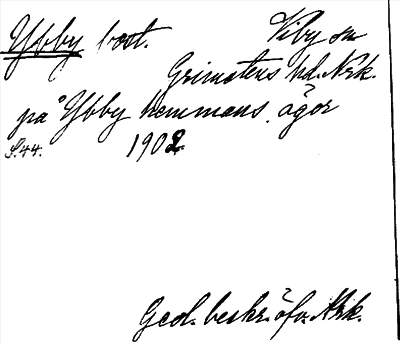 Ybby bost. Viby sn
Grimstens hd. Nrk.
på Ybby hemmans ägor
S.44. 1902
Geol. beskr. öfv. Nrk.